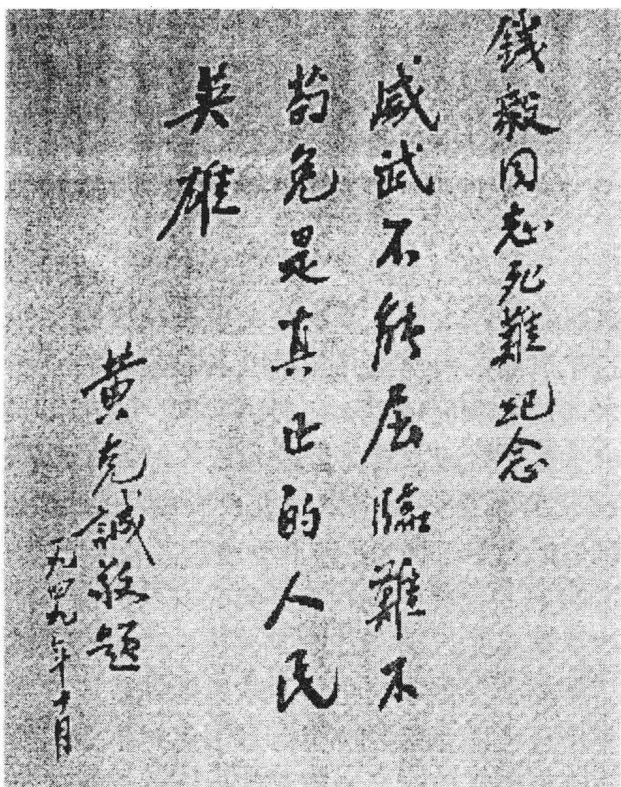 錢毅同志死難紀念
威武不能屈臨難不
苟免是真正的人民
英雄
黃克誠敬題
一九四九年十月